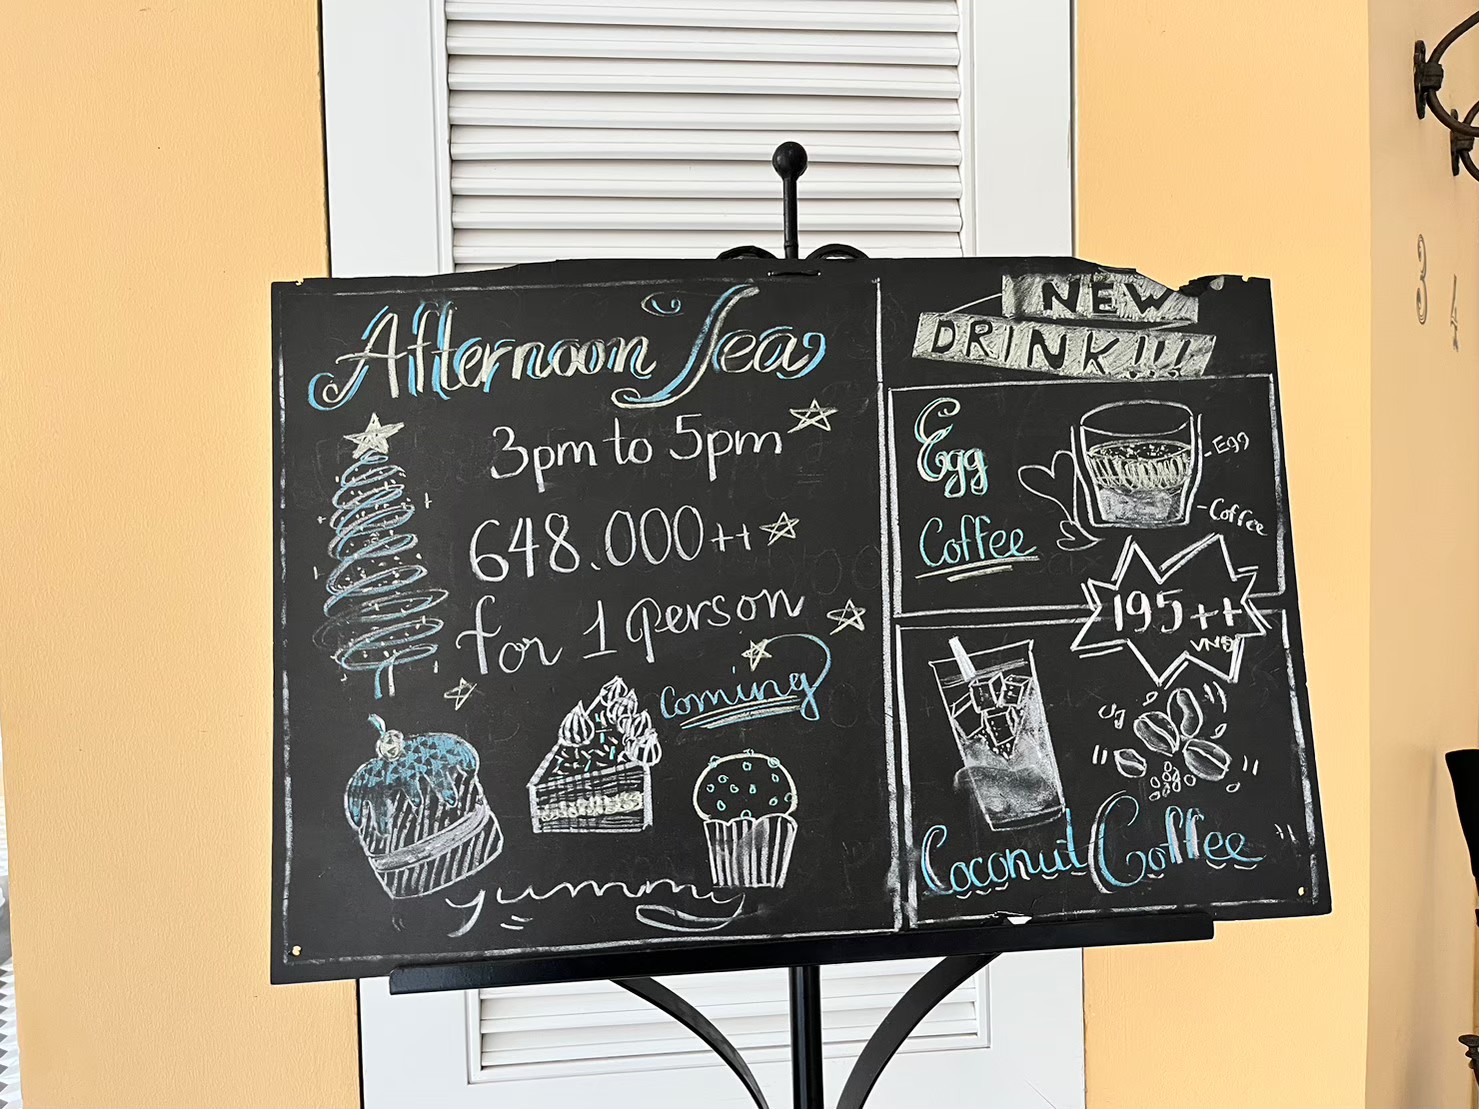 Afternoon Tea
3pm to 5pm
648.000++
for 1 person
Coming
yummy
NEW
DRINK!!!
Egg
Coffee
-Egg
-Coffee
195++
VNĐ
Coconut Coffee